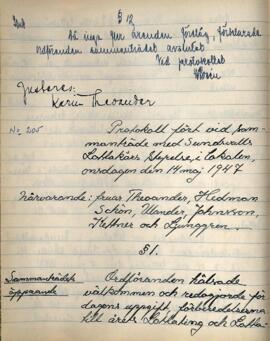 § 12
Då inga fler ärenden förelåg, förklarade
ordföranden sammanträdet avslutat.
Vid protokollet
Justeras:
Karin Theander
No 205
Protokoll fört vid sam-
manträde med Sundsvalls
Lottakårs styrelse, i lokalen,
onsdagen den 14 maj 1947
Närvarande: fruar Theander, Hedman
Schön, Ulander, Johnsson,
Kettner och Ljunggren.
§ 1.
Sammanträdets
öppnande
Ordföranden hälsade
välkommen och redogjorde för
dagens uppgift, förberedelserna
till årets Lottating och Lotta-